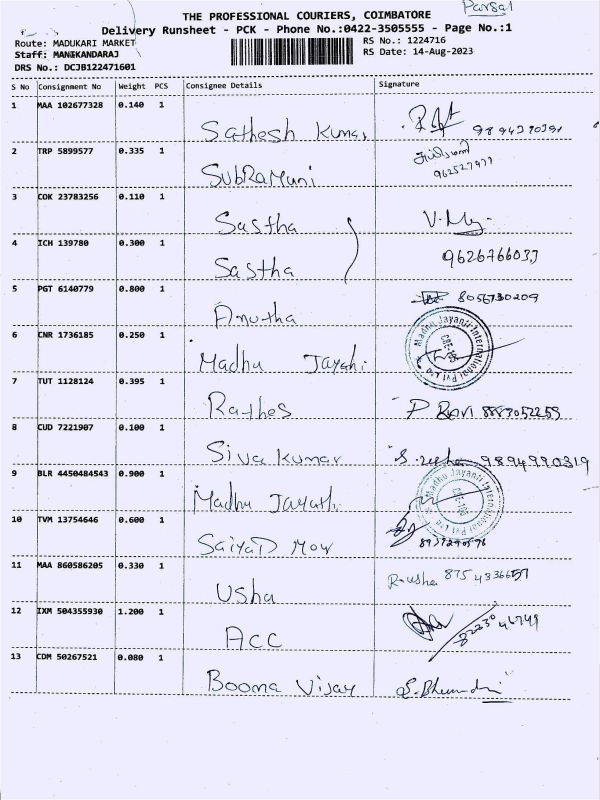 Parsal
THE PROFESSIONAL COURIERS, COIMBATORE
Delivery Runsheet - PCK - Phone No.:0422-3505555 - Page No.:1
Route: MADUKARI MARKET
RS No.: 1224716
Staff: MANIKANDARAJ
RS Date: 14-Aug-2023
DRS No.: DCJB122471601
S No Consignment No Weight PCS Consignee Details Signature
1 MAA 102677328 0.140 1 Sathesh Kumar
2 TRP 5899577 0.335 1 SubRamuni
3 COK 23783256 0.110 1 Sastha
4 ICH 139780 0.300 1 Sastha
5 PGT 6140779 0.800 1 Anutha 8056730209
6 CNR 1736185 0.250 1 Madhu Jayahi
Madhu Jayanti International Pvt Ltd
7 TUT 1128124 0.395 1 Rathes P Ravi
8 CUD 7221907 0.100 1 Siva Kumar 9894990319
9 BLR 4450484543 0.900 1 Madhu Jayath
Madhu Jayanti International Pvt Ltd
10 TVM 13754646 0.600 1 SaiyaD Mow
11 MAA 860586205 0.330 1 Usha R-usha
12 IXM 504355930 1.200 1 ACC
13 CDM 50267521 0.080 1 Booma Vijay